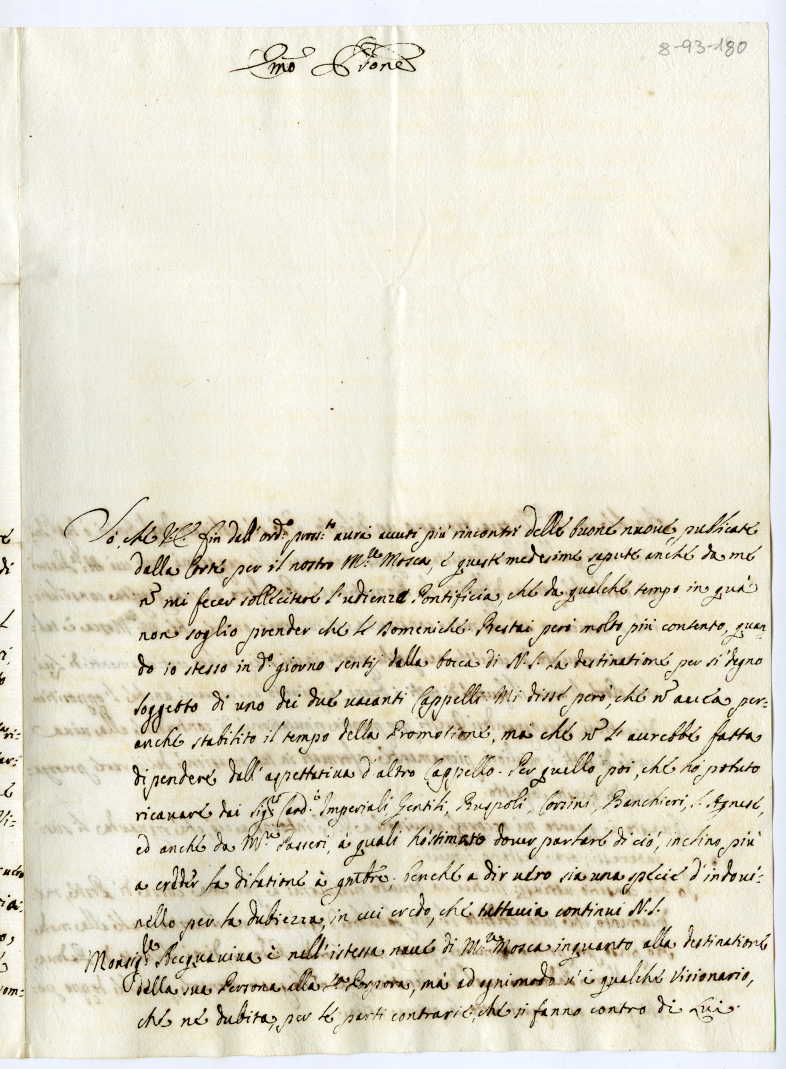 8-93-180
Emo Prone
Sò, che V.E. fin dall' ordo. pross.to aurà auuti più rincontri delle buone nuoue publicate
dalla Corte per il nostro M.re Mosca, e queste medesime sapute anche da me
nō mi fecer sollecitare l'udienza Pontificia, che da qualche tempo in quà
non soglio prender che le Domeniche. Restai però molto più contento, quan-
do io stesso in do. giorno sentij dalla bocca di N.S. la destinatione per sì degno
soggetto di uno dei due uacanti Cappelli. Mi disse però, che nō aueua per-
anche stabilito il tempo della Promotione, mà che nō l'aurebbe fatta
dipendere dall'aspettatiua d'altro Cappello. Per quello poi, che hò potuto
ricauare dai Sigri Card.i Imperiali, Gentili, Ruspoli, Corsini, Banchieri, S. Agnese,
ed anche da M.re Passeri, à quali hò stimato douer parlare di ciò, inclino più
a creder la dilatione à 9mbre, benche a dir uero sia una specie d'indoui-
nello per la dubiezza, in cui credo, che tuttauia continui N.S.
Monsig.re Acquauiua è nell'istessa naue di M.re Mosca inquanto alla destinatione
della sua Persona alla Sa. Porpora, mà ad ogni modo u'è qualche Visionario,
che ne dubita, per le parti contrarie, che si fanno contro di Lui.